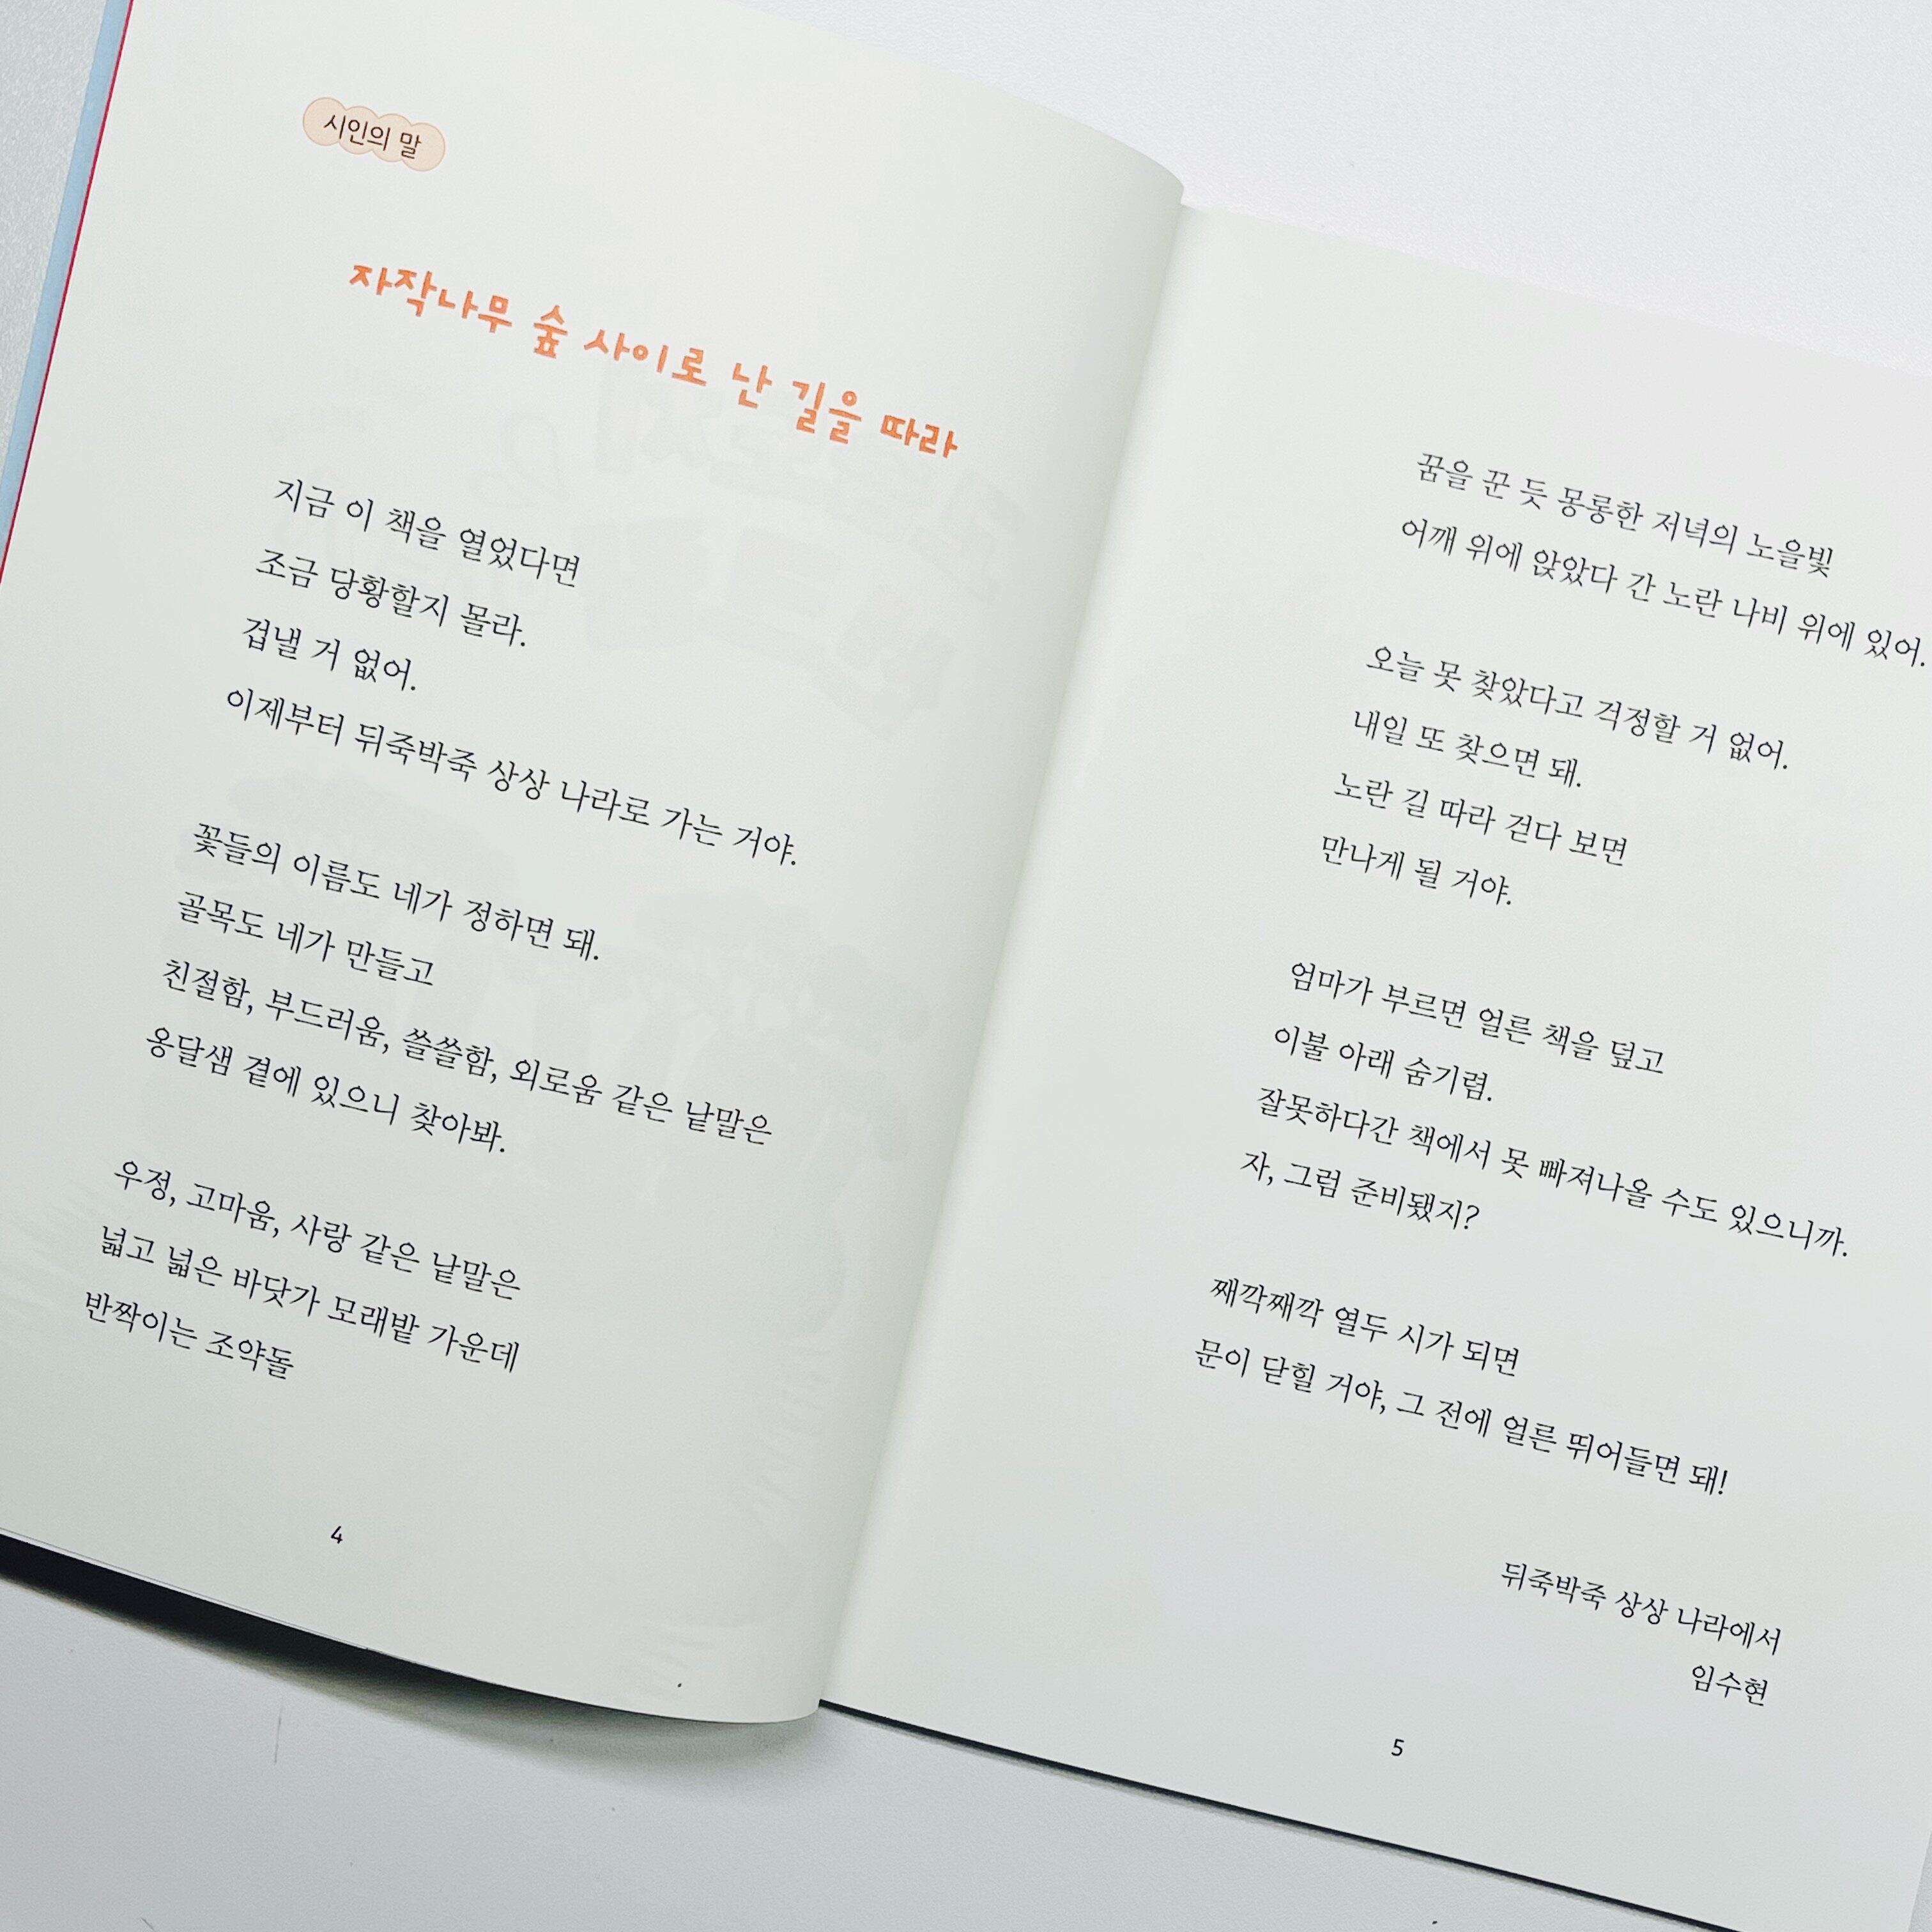 시인의 말
자작나무 숲 사이로 난 길을 따라
지금 이 책을 열었다면
조금 당황할지 몰라.
겁낼 거 없어.
이제부터 뒤죽박죽 상상 나라로 가는 거야.
꽃들의 이름도 네가 정하면 돼.
골목도 네가 만들고
친절함, 부드러움, 쓸쓸함, 외로움 같은 낱말은
옹달샘 곁에 있으니 찾아봐.
우정, 고마움, 사랑 같은 낱말은
넓고 넓은 바닷가 모래밭 가운데
반짝이는 조약돌
4
꿈을 꾼 듯 몽롱한 저녁의 노을빛
어깨 위에 앉았다 간 노란 나비 위에 있어.
오늘 못 찾았다고 걱정할 거 없어.
내일 또 찾으면 돼.
노란 길 따라 걷다 보면
만나게 될 거야.
엄마가 부르면 얼른 책을 덮고
이불 아래 숨기렴.
잘못하다간 책에서 못 빠져나올 수도 있으니까.
자, 그럼 준비됐지?
째깍째깍 열두 시가 되면
문이 닫힐 거야, 그 전에 얼른 뛰어들면 돼!
뒤죽박죽 상상 나라에서
임수현
5